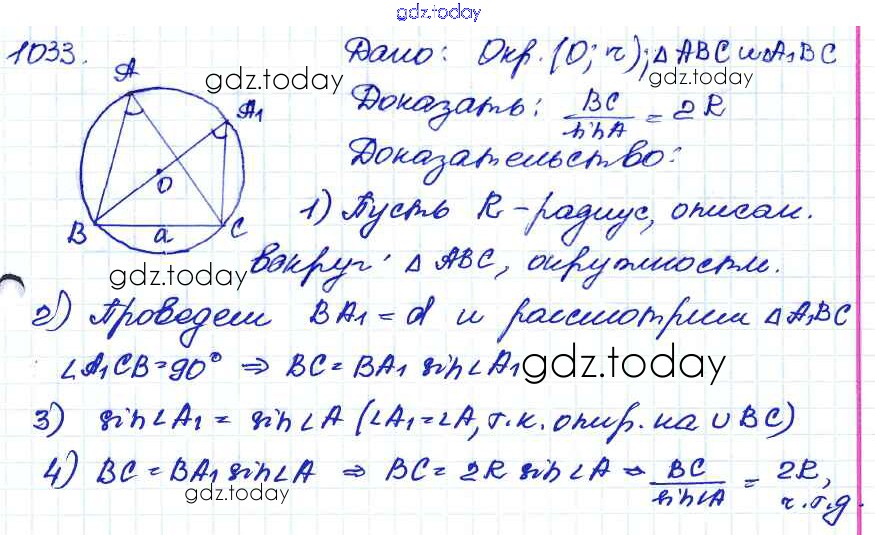 gdz.today
1033.
Дано: Окр. (O; r); △ABC и △A₁BC
gdz.today
gdz.today
Доказать: BC/sinA = 2R
Доказательство:
A
A₁
O
B
a
C
1) Пусть R – радиус, описан.
вокруг △ABC, окружности.
gdz.today
2) Проведем BA₁ = d и рассмотрим △A₁BC
∠A₁CB = 90° ⇒ BC = BA₁ sin∠A₁
gdz.today
3) sin∠A₁ = sin∠A (∠A₁ = ∠A, т.к. опир. на ∪BC)
4) BC = BA₁ sin∠A ⇒ BC = 2R sin∠A ⇒ BC/sin∠A = 2R,
gdz.today
ч.т.д.